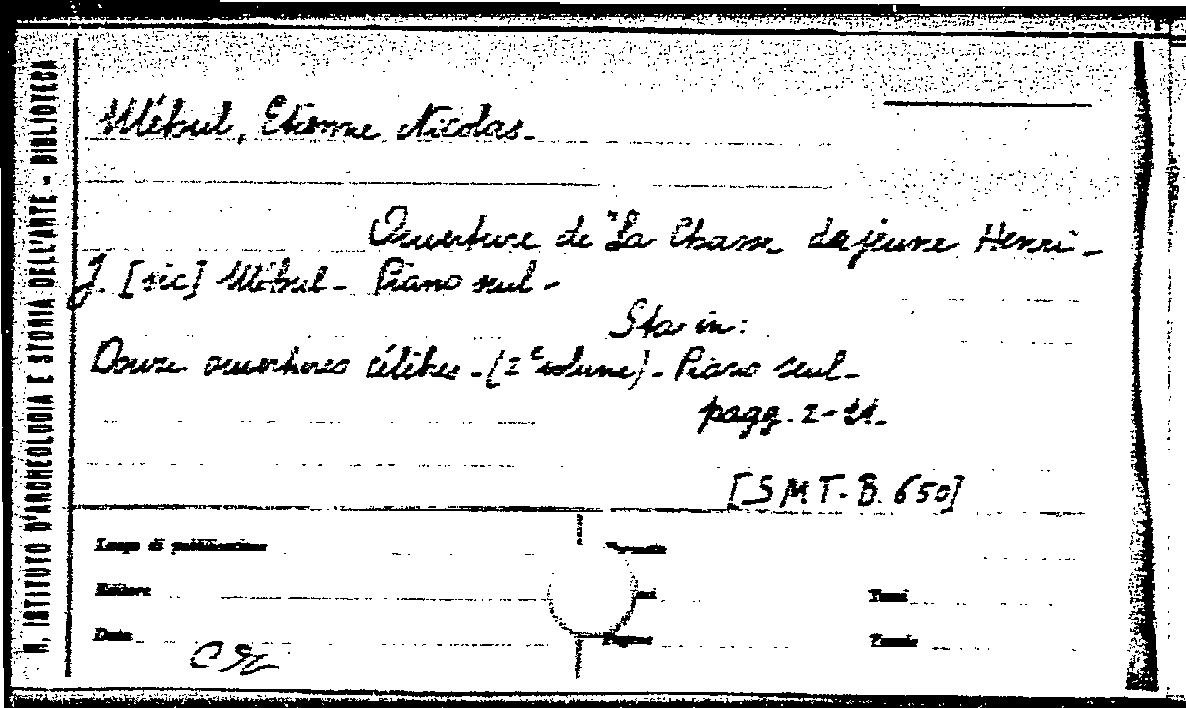 R. ISTITUTO D'ARCHEOLOGIA E STORIA DELL'ARTE - BIBLIOTECA
Méhul, Etienne Nicolas.
Ouverture de "La Chasse du jeune Henri -
J. [sic] Méhul - Piano seul -
Sta in:
Douze ouvertures célèbres - (2e volume) - Piano seul -
pagg. 2-11.
[SMT. B. 650]
Luogo di pubblicazione Formato
Editore Tomi
Data Pagine Tavole